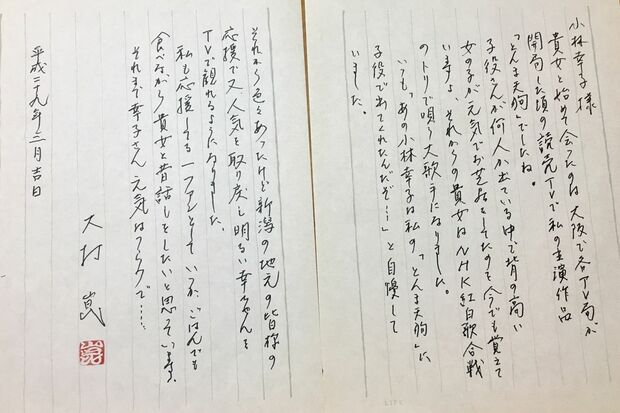 小林幸子様
貴女と始めて会ったのは大阪で各TV局が
開局した頃の読売TVで私の主演作品
「とんま天狗」でしたね。
子役さんが何人か出ている中で背の高い
女の子が元気でお芝居をしてたのを今でも覚えて
いますよ、それからの貴女はNHK紅白歌合戦
のトリで唄う大歌手になりました。
いつも「あの小林幸子は私の「とんま天狗」に
子役で出てくれたんだぞ…」と自慢して
いました。
それから色々あったけど新潟の地元の皆様の
応援で又人気を取り戻し明るい幸ちゃんを
TVで観れるようになりました。
私も応援してる一ファンとしていつか、ごはんでも
食べながら貴女と昔話しをしたいと思っています。
それまで幸子さん元気はつらつで……
平成二十九年三月吉日
大村崑